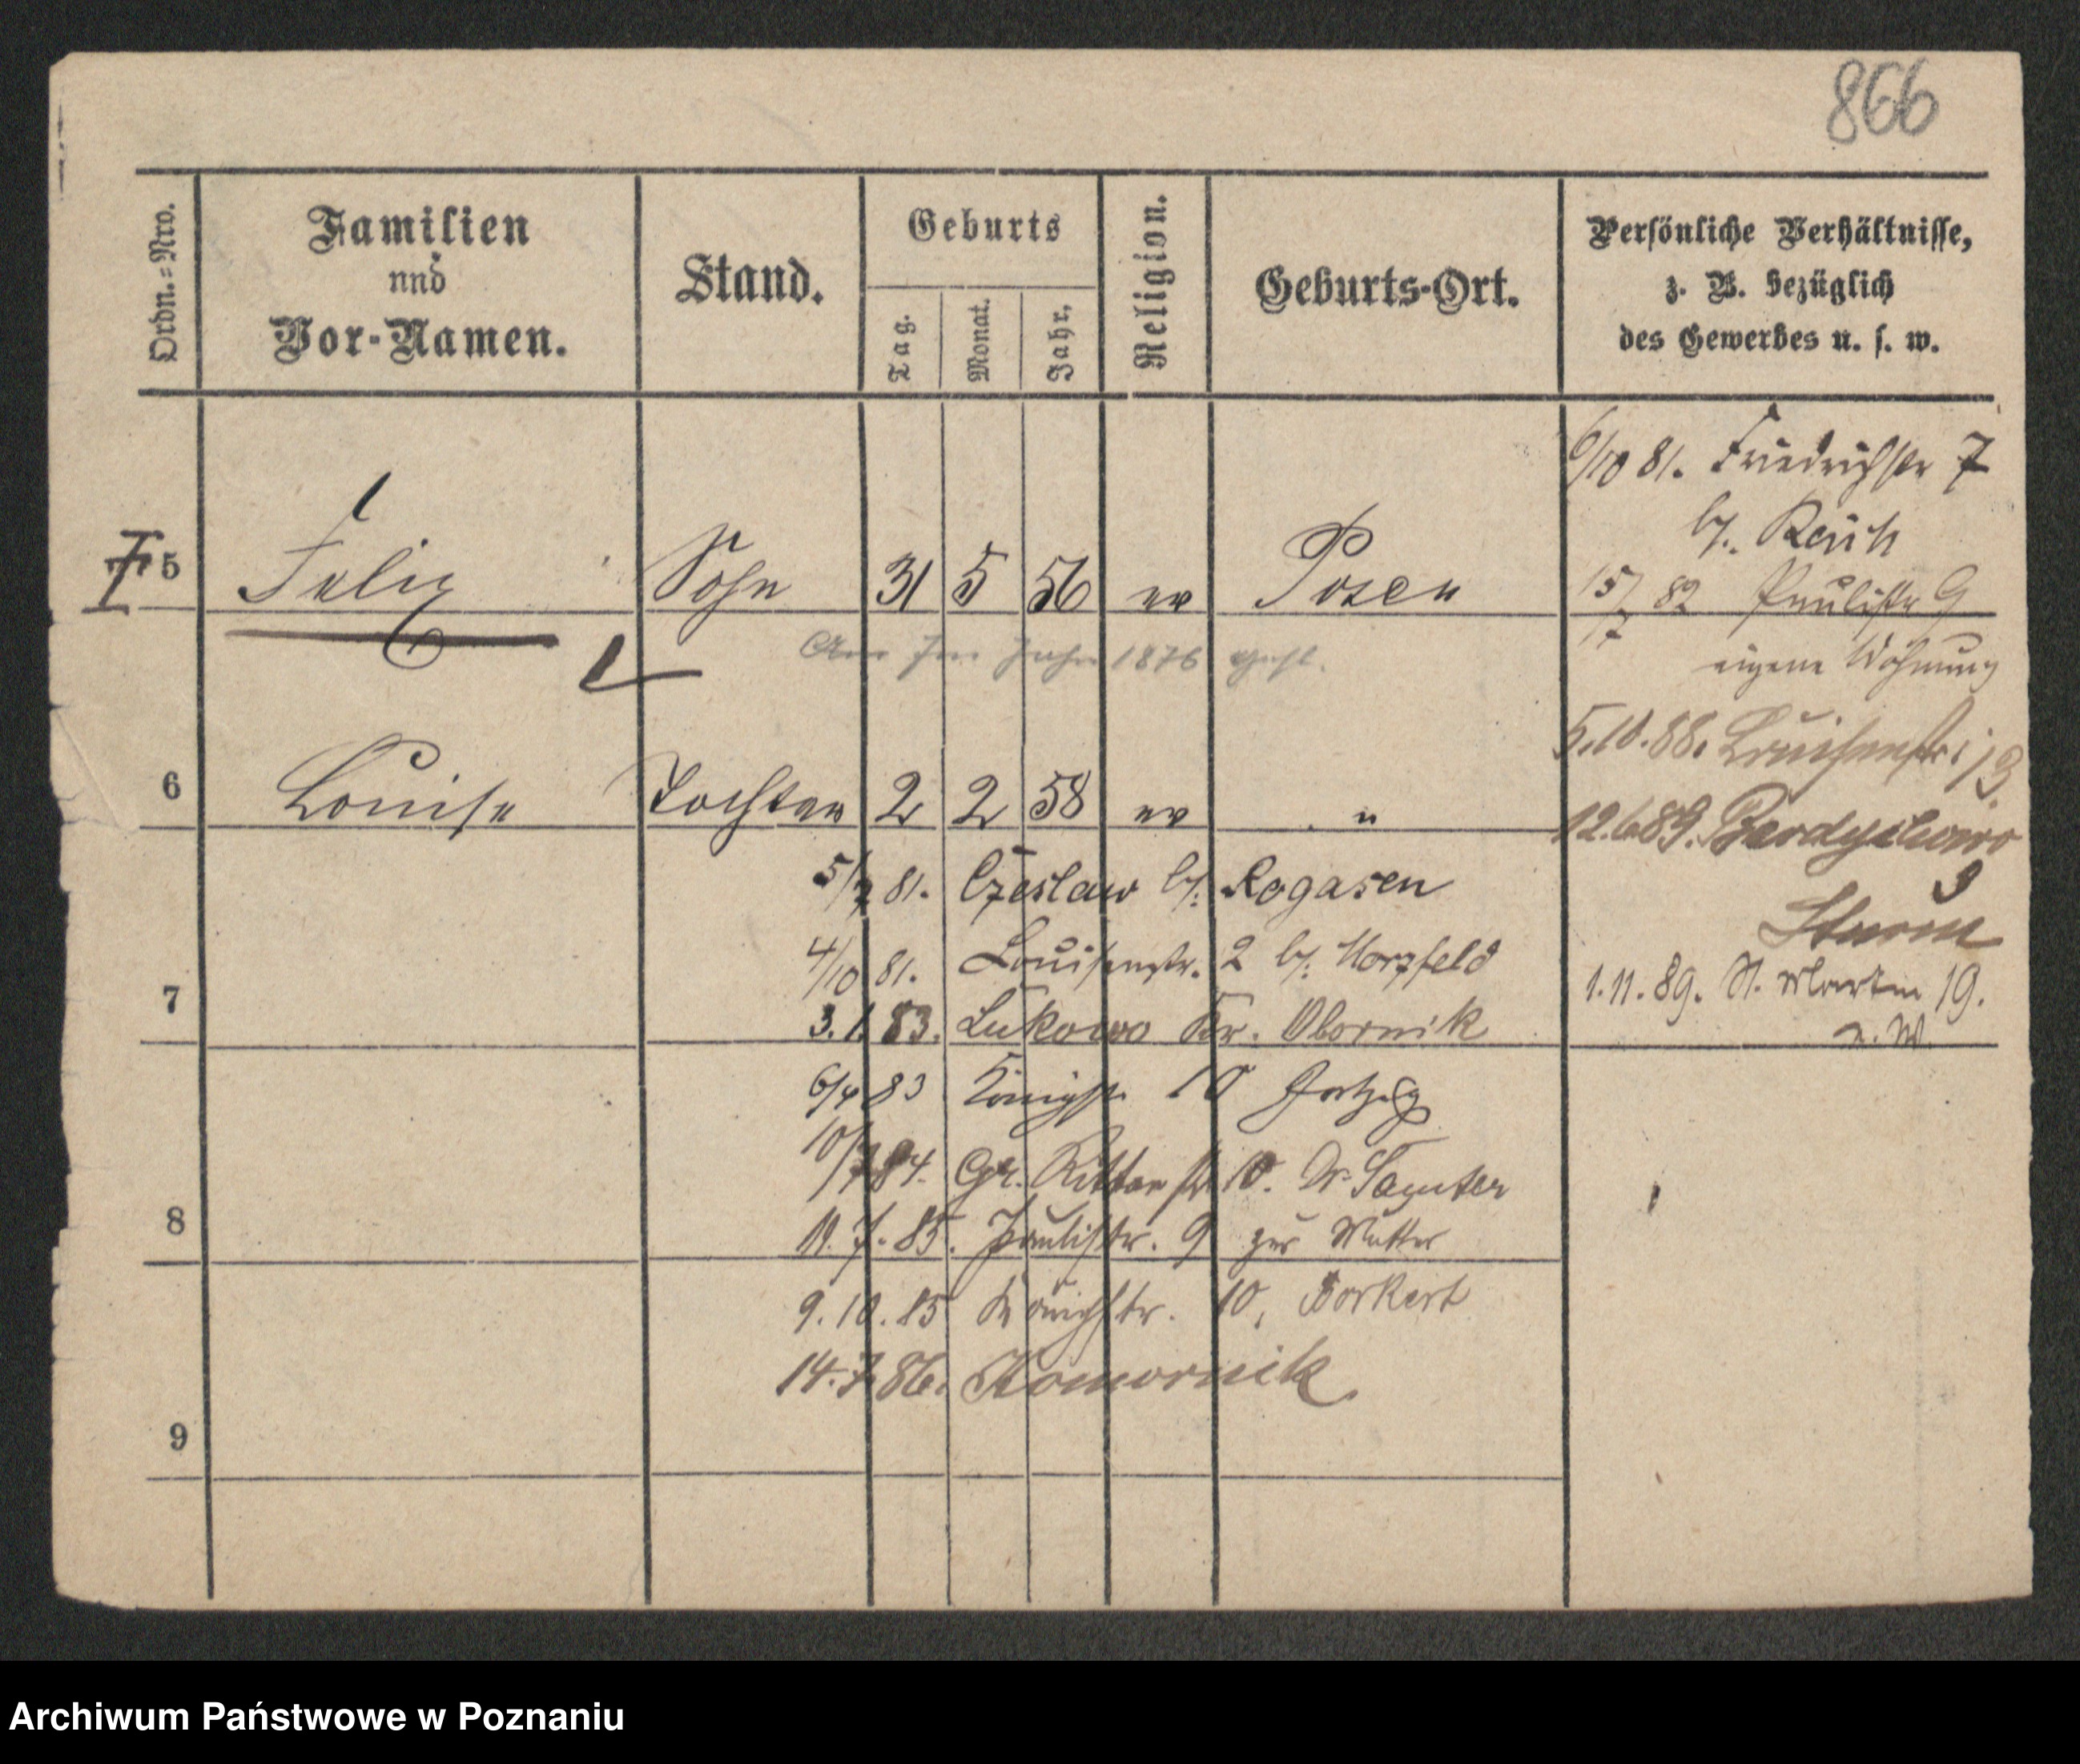 866
Ordn.=Nro.
Familien
und
Vor-Namen.
Stand.
Geburts
Tag.
Monat.
Jahr.
Religion.
Geburts-Ort.
Persönliche Verhältnisse,
z. B. bezüglich
des Gewerbes u. s. w.
5 Felix Sohn 31 5 56 ev Posen
Jahr 1876
6 Louise Tochter 2 2 58 ev "
5/7 81. Czeslaw b/. Rogasen
4/10 81. Louisenstr. 2 b/. Horzfeld
7
3. 1. 83. Lukowo Kr. Obornik
6/4 83 Königstr. 10
10/7 84. Gr. Ritterstr 10. Dr. Samter
8
11. 7. 85. Paulistr. 9 zur Mutter
9. 10. 85 Königstr. 10, Borkert
14. 7. 86. Komornik
9
6/10 81. Friedrichstr 7
b/. Reich
15/7 82 Paulistr 9
eigene Wohnung
5.10.88. Louisenstr. 13.
12.6.89. Berdychowo
3
Sturm
1.11.89. St. Martin 19.
Archiwum Państwowe w Poznaniu